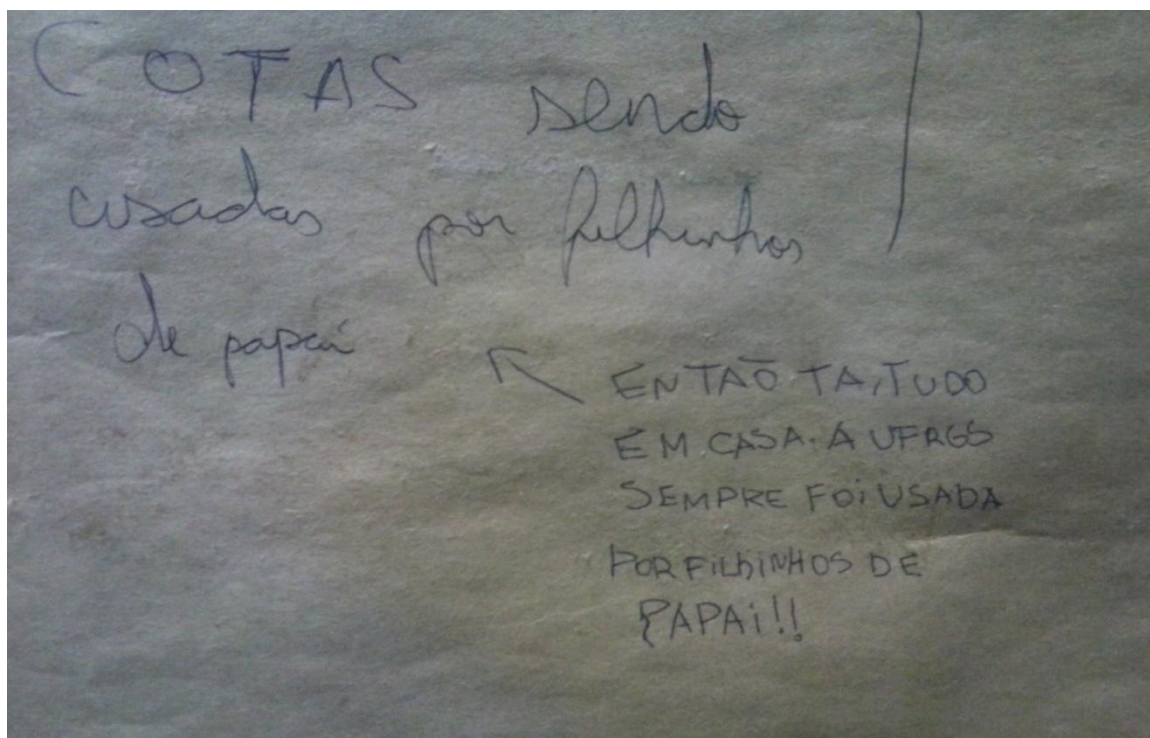 COTAS sendo
usadas por filhinhos
de papai
ENTAÕ TA, TUDO
EM CASA. A UFRGS
SEMPRE FOI USADA
POR FILhiNHOS DE
PAPAi!!